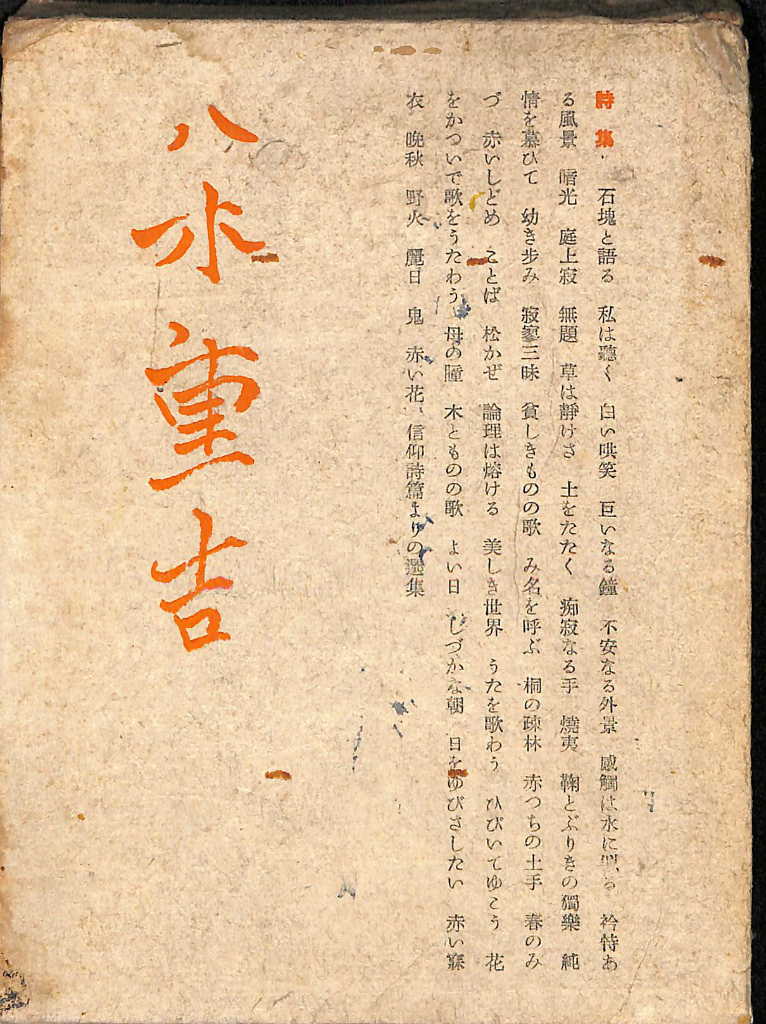 詩集 石塊と語る 私は聽く 白い哄笑 巨いなる鐘 不安なる外景 感觸は水に 衿持あ
る風景 暗光 庭上寂 無題 草は靜けさ 土をたたく 痴寂なる手 燒夷 鞠とぶりきの獨樂 純
情を慕ひて 幼き歩み 寂寥三昧 貧しきものの歌 み名を呼ぶ 桐の疎林 赤つちの土手 春のみ
づ 赤いしどめ ことば 松かぜ 論理は熔ける 美しき世界 うたを歌わう ひびいてゆこう 花
をかついで歌をうたわう 母の瞳 木とものの歌 よい日 しづかな朝 日をゆびさしたい 赤い寢
衣 晩秋 野火 麗日 鬼 赤い花、信仰詩篇よりの選集
八木重吉